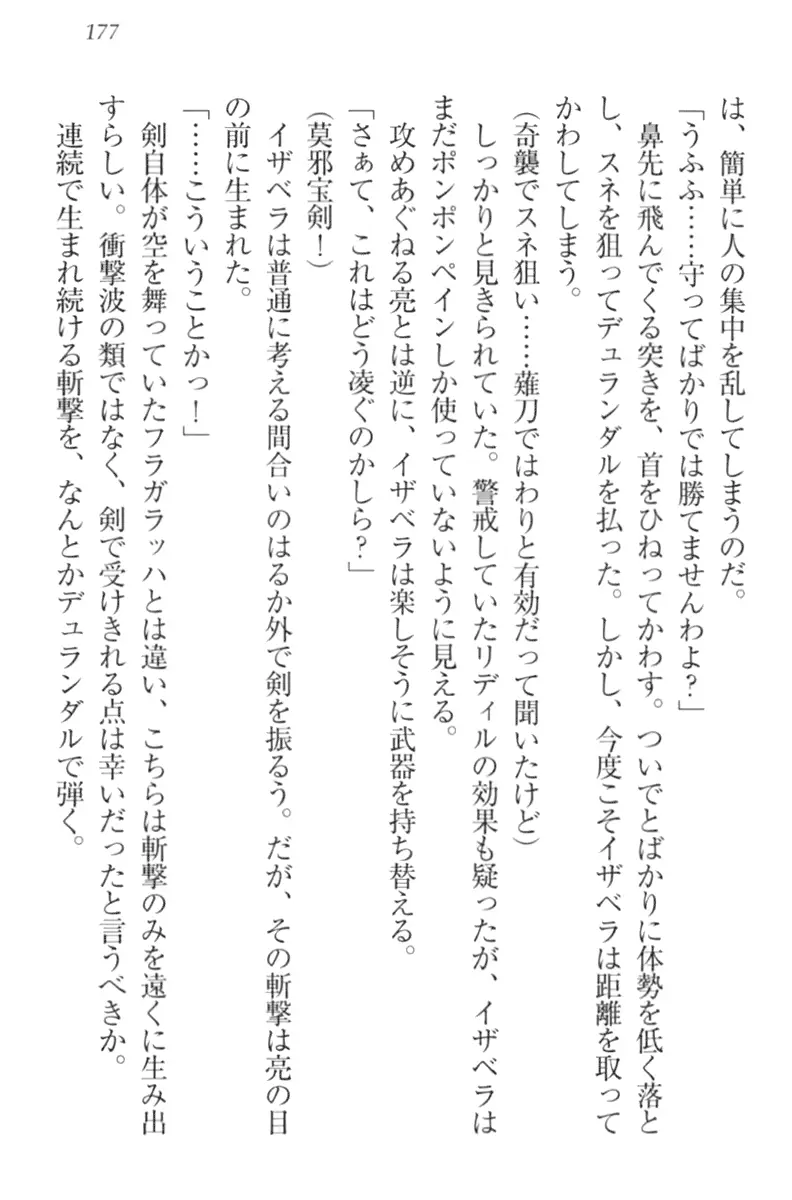 177
は、簡単に人の集中を乱してしまうのだ。
「うふふ……守ってばかりでは勝てませんわよ？」
　鼻先に飛んでくる突きを、首をひねってかわす。ついでとばかりに体勢を低く落と
し、スネを狙ってデュランダルを払った。しかし、今度こそイザベラは距離を取って
かわしてしまう。
（奇襲でスネ狙い……薙刀ではわりと有効だって聞いたけど）
　しっかりと見きられていた。警戒していたリディルの効果も疑ったが、イザベラは
まだポンポンペインしか使っていないように見える。
　攻めあぐねる亮とは逆に、イザベラは楽しそうに武器を持ち替える。
「さぁて、これはどう凌ぐのかしら？」
（莫邪宝剣！）
　イザベラは普通に考える間合いのはるか外で剣を振るう。だが、その斬撃は亮の目
の前に生まれた。
「……こういうことかっ！」
　剣自体が空を舞っていたフラガラッハとは違い、こちらは斬撃のみを遠くに生み出
すらしい。衝撃波の類ではなく、剣で受けきれる点は幸いだったと言うべきか。
　連続で生まれ続ける斬撃を、なんとかデュランダルで弾く。